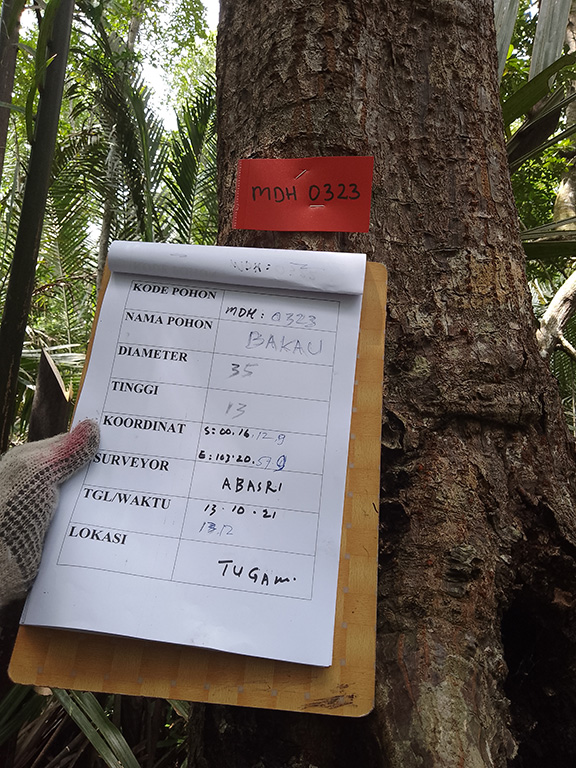 MDH 0323
KODE POHON MDH: 0323
NAMA POHON BAKAU
DIAMETER 35
TINGGI 13
KOORDINAT S: 00.16.129
E: 103.20.579
SURVEYOR ABASRI
TGL/WAKTU 13.10.21
13.12
LOKASI TUGAM.